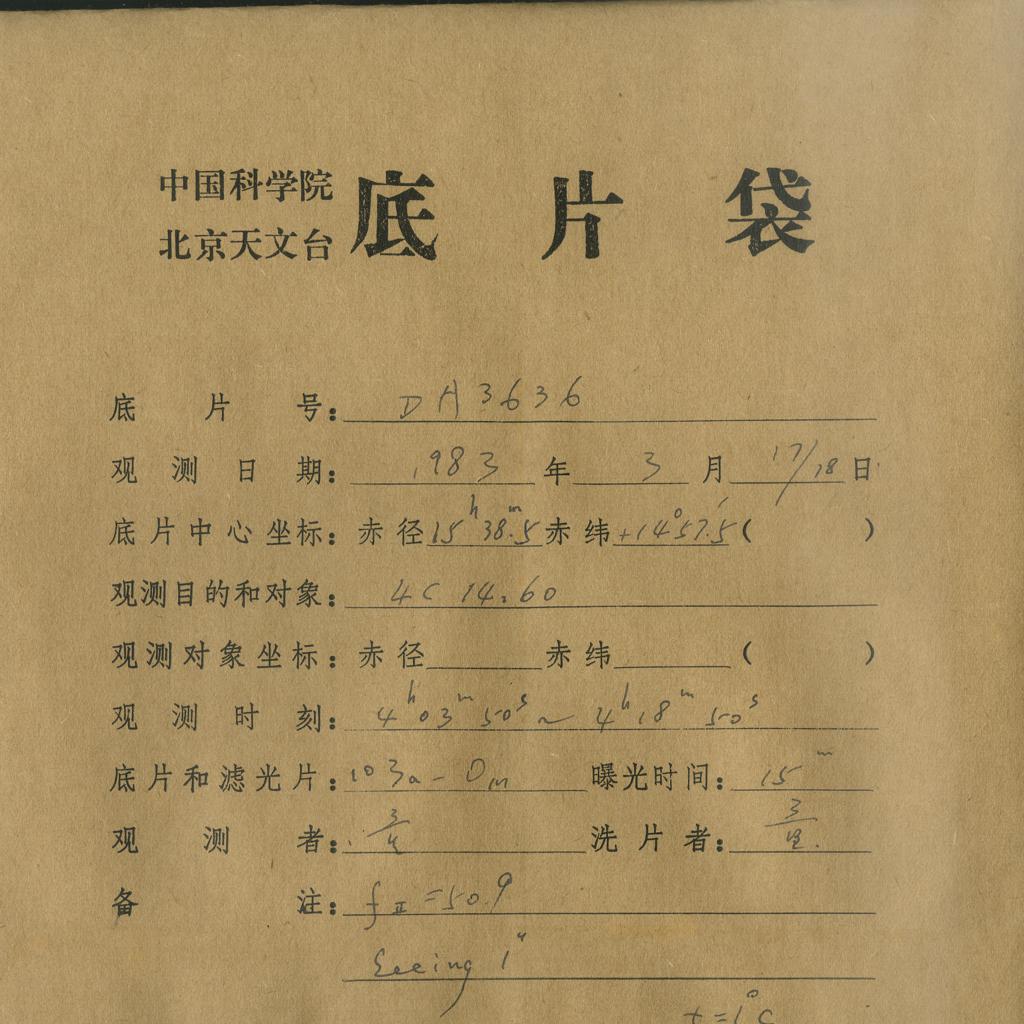 中国科学院
北京天文台 底片袋
底片号: DA3636
观测日期: 1983年3月17/18日
底片中心坐标: 赤径15ʰ38.ᵐ5赤纬+14°57.′5( )
观测目的和对象: 4C 14.60
观测对象坐标: 赤径 赤纬 ( )
观测时刻: 4ʰ03ᵐ50ˢ~4ʰ18ᵐ50ˢ
底片和滤光片: 103a-Dm 曝光时间: 15ᵐ
观测者: 洗片者:
备注: fⅡ=50.9
Seeing 1″
t=1°C